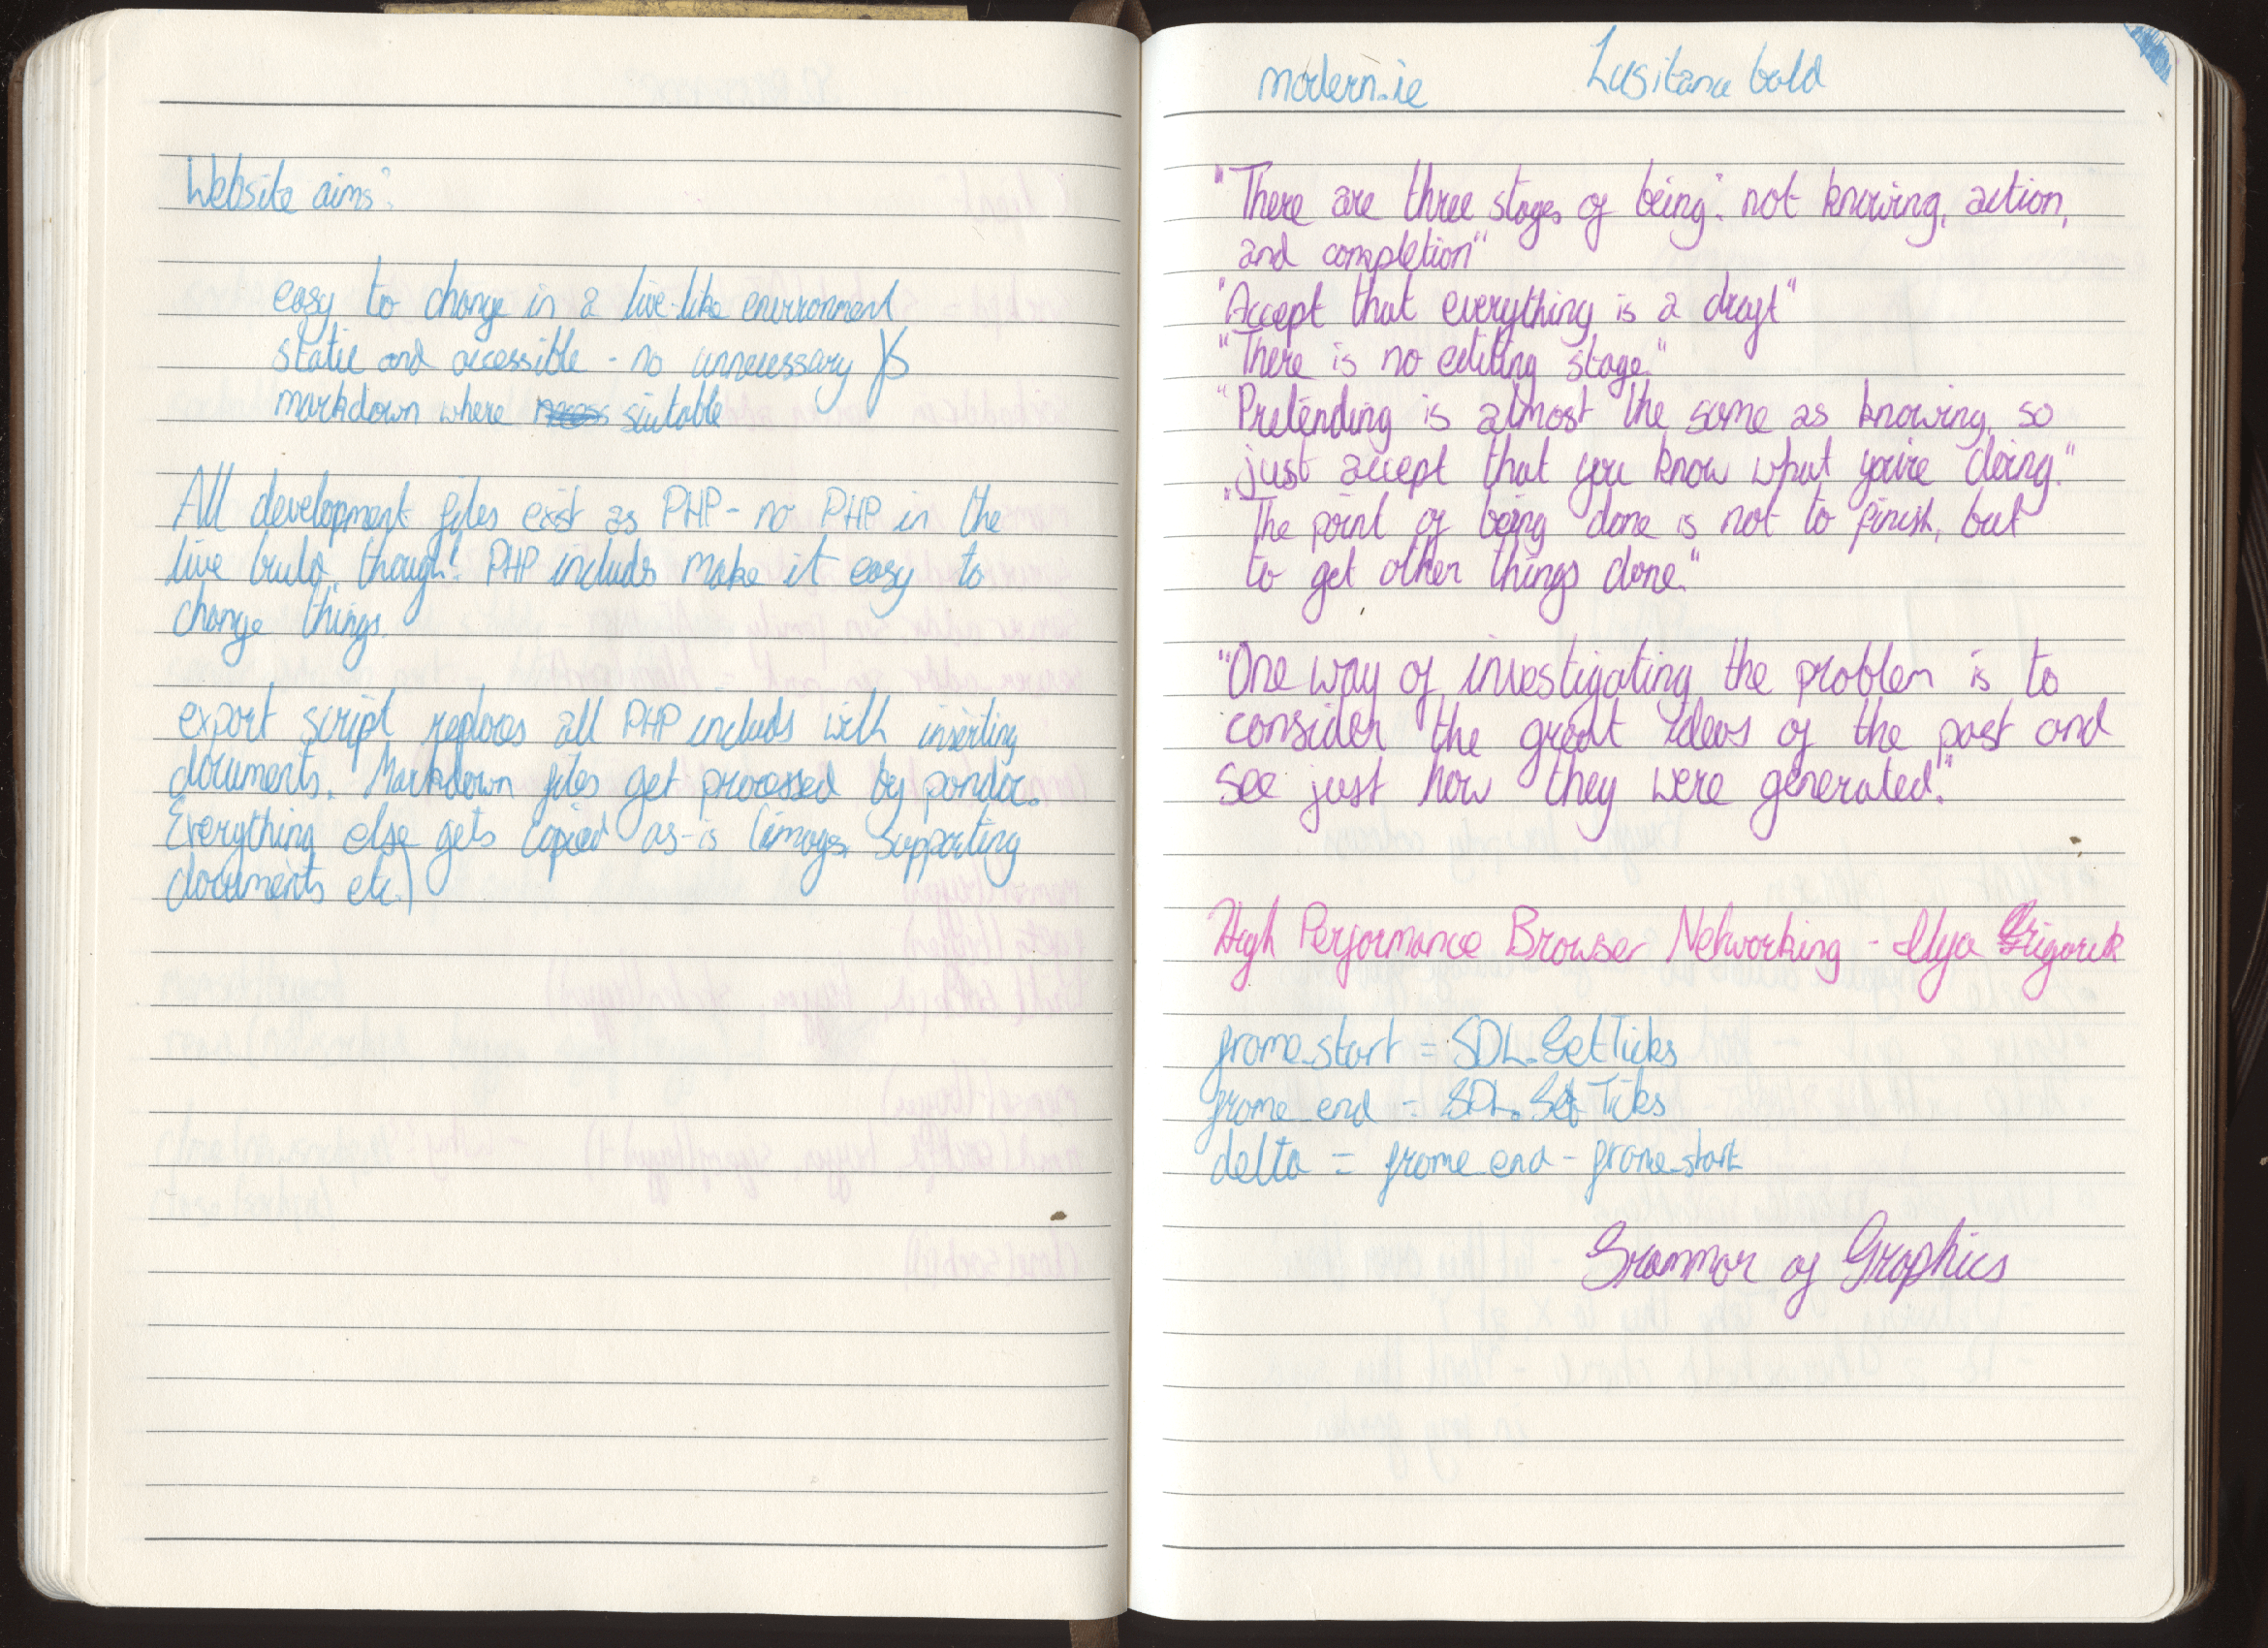 Website aims:
easy to change in a live-like environment
static and accessible - no unnecessary JS
markdown where suitable
All development files exist as PHP - no PHP in the
live build, though! PHP includes make it easy to
change things.
export script replaces all PHP includes with inserting
documents. Markdown files get processed by pandoc.
Everything else gets copied as-is (images, supporting
documents etc.)
modern.ie
Lusitana bold
"There are three stages of being: not knowing, action,
and completion"
"Accept that everything is a draft"
"There is no editing stage."
"Pretending is almost the same as knowing, so
just accept that you know what you're doing."
"The point of being done is not to finish, but
to get other things done."
"One way of investigating the problem is to
consider the great ideas of the past and
see just how they were generated."
High Performance Browser Networking - Ilya Grigorik
frame_start = SDL_GetTicks
frame_end = SDL_GetTicks
delta = frame_end - frame_start
Grammar of Graphics